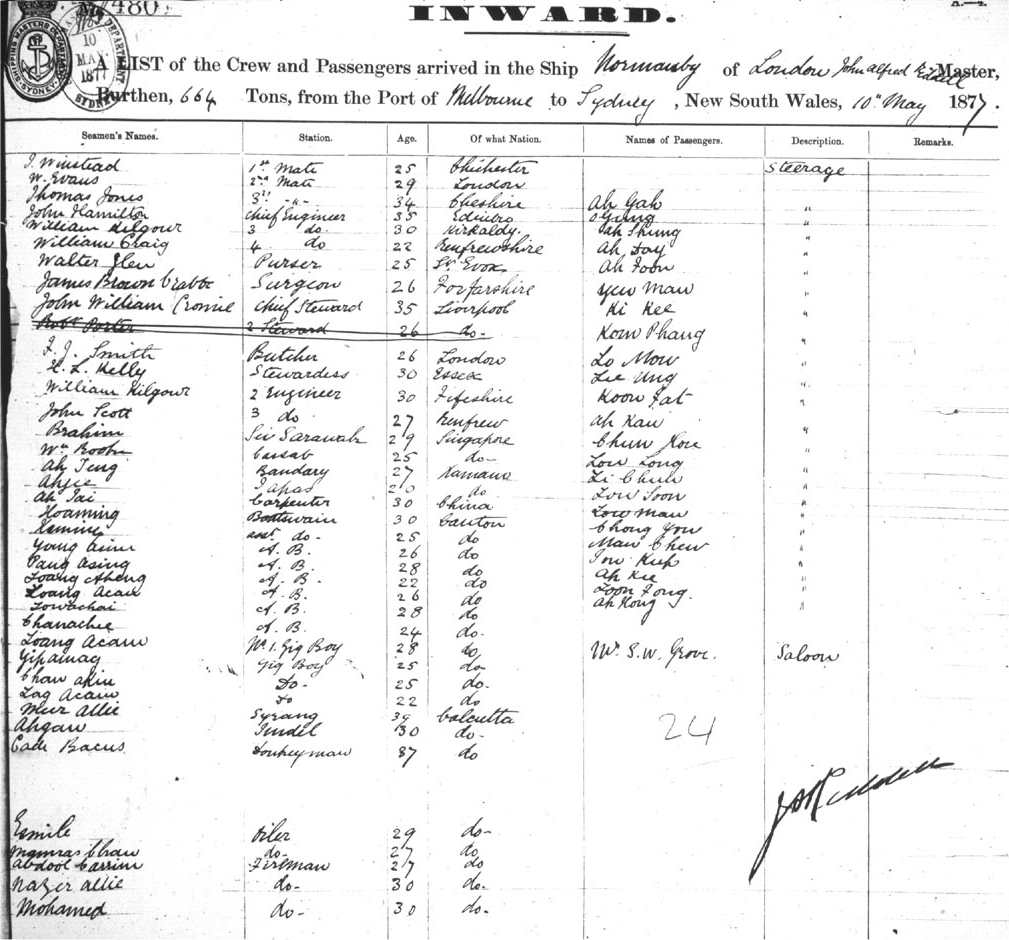 No. 480
INWARD.
A LIST of the Crew and Passengers arrived in the Ship Normanby of London John Alfred Master,
Burthen, 664 Tons, from the Port of Melbourne to Sydney, New South Wales, 10th May 1877.
Seamen's Names. Station. Age. Of what Nation. Names of Passengers. Description. Remarks.
J. Winstead 1st Mate 25 Chichester Steerage
W. Evans 2nd Mate 29 London
Thomas Jones 3rd -"- 34 Cheshire Ah Gah "
John Hamilton Chief Engineer 35
William Kilgour 3 do. 30 Kirkaldy. Shung "
William Craig 4 do 22 Renfrewshire Ah "
Walter Glen Purser 25 Ah Foon "
James Brown Crabbe Surgeon 26 Forfarshire Yew Man "
John William Cronie Chief Steward 35 Liverpool Ki Kee "
Robt Porter 2 Steward 26 do- Kom Phang "
F. J. Smith Butcher 26 London Lo Mow "
Kelly Stewardess 30 Essex Lee Ung "
William Kilgour 2 Engineer 30 Fifeshire Koon Fat "
John Scott 3 do 27 Renfrew Ah Kau
Brahim 29 Singapore Chun "
Wm Cassab 25 do- Long "
Ah Teng Bandary 27 Li Chun "
20 do Soon "
Ah Tai Carpenter 30 China Low Man "
Hoaming Boatswain 30 Canton Chong You "
asst. do- 25 do Man Chew "
Yong A.B. 26 do "
Pang Asing A.B. 28 do Ah Kee "
Loang Aheng A.B. 22 do Loon Fong. "
Loang Acan A.B. 26 do Ah Hong "
Lowachai A.B. 28 do
Chanachee A.B. 24 do.
Loang Acam No. 1. Gig Boy 28 do Mr. S.W. Grove. Saloon
Gig Boy 25 do-
Chan Do- 25 do.
Acam Do 22 do
Meer Allie Syrang 39 Calcutta
Ahgau Tindel 30 do- 24
Cade Bacus Donkeyman 37 do
Esmile Oiler 29 do-
do- 27 do
Abdool Carrim Fireman 27 do
Nazer Allie do- 30 do.
Mohamed do- 30 do.